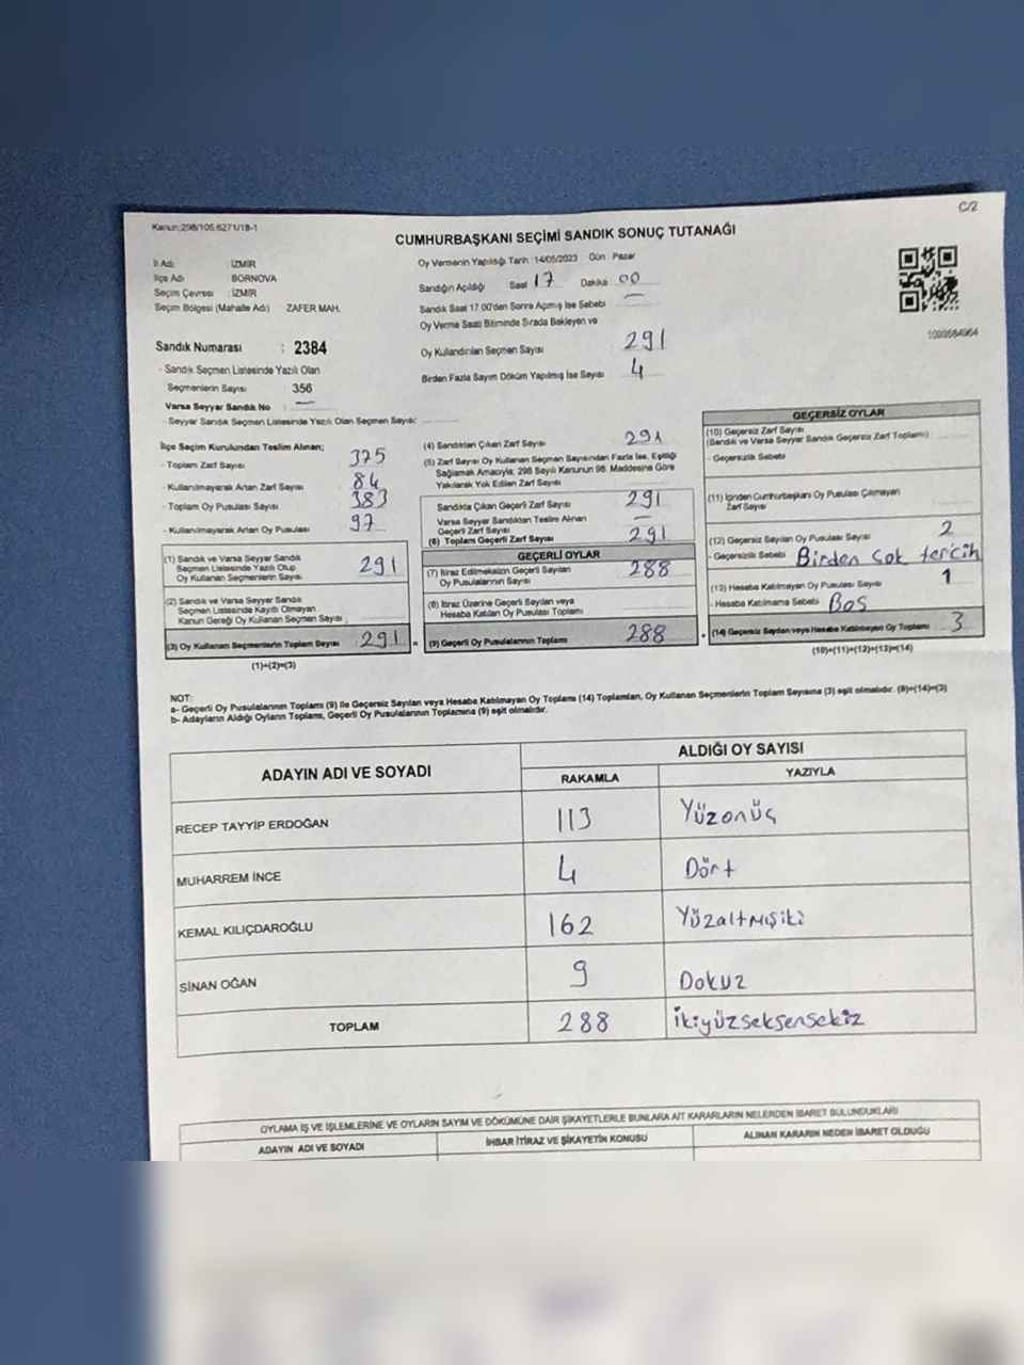 C/2
Kanun:298/105.6271/18-1
CUMHURBAŞKANI SEÇİMİ SANDIK SONUÇ TUTANAĞI
İl Adı : İZMİR
İlçe Adı : BORNOVA
Seçim Çevresi : İZMİR
Seçim Bölgesi (Mahalle Adı) ZAFER MAH.
Sandık Numarası : 2384
- Sandık Seçmen Listesinde Yazılı Olan
Seçmenlerin Sayısı : 356
Varsa Seyyar Sandık No : —
- Seyyar Sandık Seçmen Listesinde Yazılı Olan Seçmen Sayısı:
Oy Vermenin Yapıldığı Tarih :14/05/2023 Gün : Pazar
Sandığın Açıldığı Saat 17 Dakika 00
Sandık Saat 17.00'den Sonra Açılmış İse Sebebi —
Oy Verme Saati Bitiminde Sırada Bekleyen ve
Oy Kullandırılan Seçmen Sayısı 291
Birden Fazla Sayım Döküm Yapılmış İse Sayısı 4
1000684964
İlçe Seçim Kurulundan Teslim Alınan;
- Toplam Zarf Sayısı 375
- Kullanılmayarak Artan Zarf Sayısı 84
- Toplam Oy Pusulası Sayısı 383
- Kullanılmayarak Artan Oy Pusulası 97
(1) Sandık ve Varsa Seyyar Sandık
Seçmen Listesinde Yazılı Olup
Oy Kullanan Seçmenlerin Sayısı 291
(2) Sandık ve Varsa Seyyar Sandık
Seçmen Listesinde Kayıtlı Olmayan
Kanun Gereği Oy Kullanan Seçmen Sayısı
(3) Oy Kullanan Seçmenlerin Toplam Sayısı 291
(1)+(2)=(3)
(4) Sandıktan Çıkan Zarf Sayısı 291
(5) Zarf Sayısı Oy Kullanan Seçmen Sayısından Fazla İse, Eşitliği
Sağlamak Amacıyla; 298 Sayılı Kanunun 98. Maddesine Göre
Yakılarak Yok Edilen Zarf Sayısı
Sandıkta Çıkan Geçerli Zarf Sayısı 291
Varsa Seyyar Sandıktan Teslim Alınan
Geçerli Zarf Sayısı —
(6) Toplam Geçerli Zarf Sayısı 291
GEÇERLİ OYLAR
(7) İtiraz Edilmeksizin Geçerli Sayılan
Oy Pusulalarının Sayısı 288
(8) İtiraz Üzerine Geçerli Sayılan veya
Hesaba Katılan Oy Pusulası Toplamı
(9) Geçerli Oy Pusulalarının Toplamı 288
GEÇERSİZ OYLAR
(10) Geçersiz Zarf Sayısı
(Sandık ve Varsa Seyyar Sandık Geçersiz Zarf Toplamı)
- Geçersizlik Sebebi
(11) İçinden Cumhurbaşkanı Oy Pusulası Çıkmayan
Zarf Sayısı
(12) Geçersiz Sayılan Oy Pusulası Sayısı 2
- Geçersizlik Sebebi Birden Çok tercih
(13) Hesaba Katılmayan Oy Pusulası Sayısı 1
- Hesaba Katılmama Sebebi Boş
(14) Geçersiz Sayılan veya Hesaba Katılmayan Oy Toplamı 3
(10)+(11)+(12)+(13)=(14)
NOT:
a- Geçerli Oy Pusulalarının Toplamı (9) ile Geçersiz Sayılan veya Hesaba Katılmayan Oy Toplamı (14) Toplamları, Oy Kullanan Seçmenlerin Toplam Sayısına (3) eşit olmalıdır. (9)+(14)=(3)
b- Adayların Aldığı Oyların Toplamı, Geçerli Oy Pusulalarının Toplamına (9) eşit olmalıdır.
ADAYIN ADI VE SOYADI ALDIĞI OY SAYISI
RAKAMLA YAZIYLA
RECEP TAYYİP ERDOĞAN 113 Yüzonüç
MUHARREM İNCE 4 Dört
KEMAL KILIÇDAROĞLU 162 Yüzaltmışiki
SİNAN OĞAN 9 Dokuz
TOPLAM 288 İkiyüzseksensekiz
OYLAMA İŞ VE İŞLEMLERİNE VE OYLARIN SAYIM VE DÖKÜMÜNE DAİR ŞİKAYETLERLE BUNLARA AİT KARARLARIN NELERDEN İBARET BULUNDUKLARI
ADAYIN ADI VE SOYADI İHBAR İTİRAZ VE ŞİKAYETİN KONUSU ALINAN KARARIN NEDEN İBARET OLDUĞU